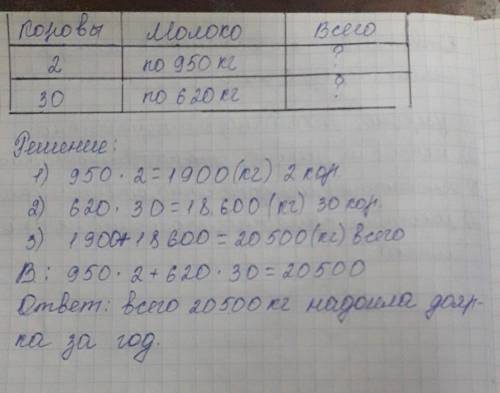 Коровы Молоко Всего
2 по 950 кг ?
30 по 620 кг ?
Решение:
1) 950 · 2 = 1900 (кг) 2 кор.
2) 620 · 30 = 18600 (кг) 30 кор.
3) 1900 + 18600 = 20500 (кг) всего
В: 950 · 2 + 620 · 30 = 20500
Ответ: всего 20500 кг надоила дояр-
ка за год.